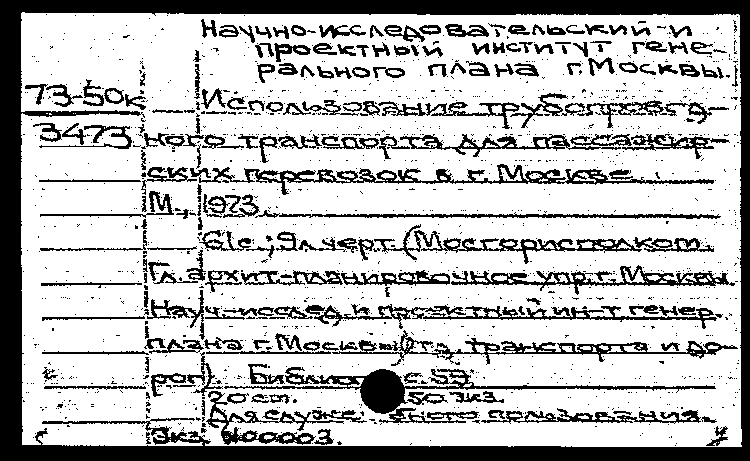 Научно-исследовательский и
проектный институт гене-
рального плана г. Москвы.
73-50к Использование трубопровод-
3473 ного транспорта для пассажир-
ских перевозок в г. Москве
М., 1973.
61с.; 9л. черт. (Мосгорисполком.
Гл. архит.-планировочное упр. г. Москвы
Науч.-исслед. и проектный ин-т генер.
плана г. Москвы. транспорта и до-
рог). с. 59.
20 cm. 50 экз.
Для служебного пользования.
Экз. N00003.